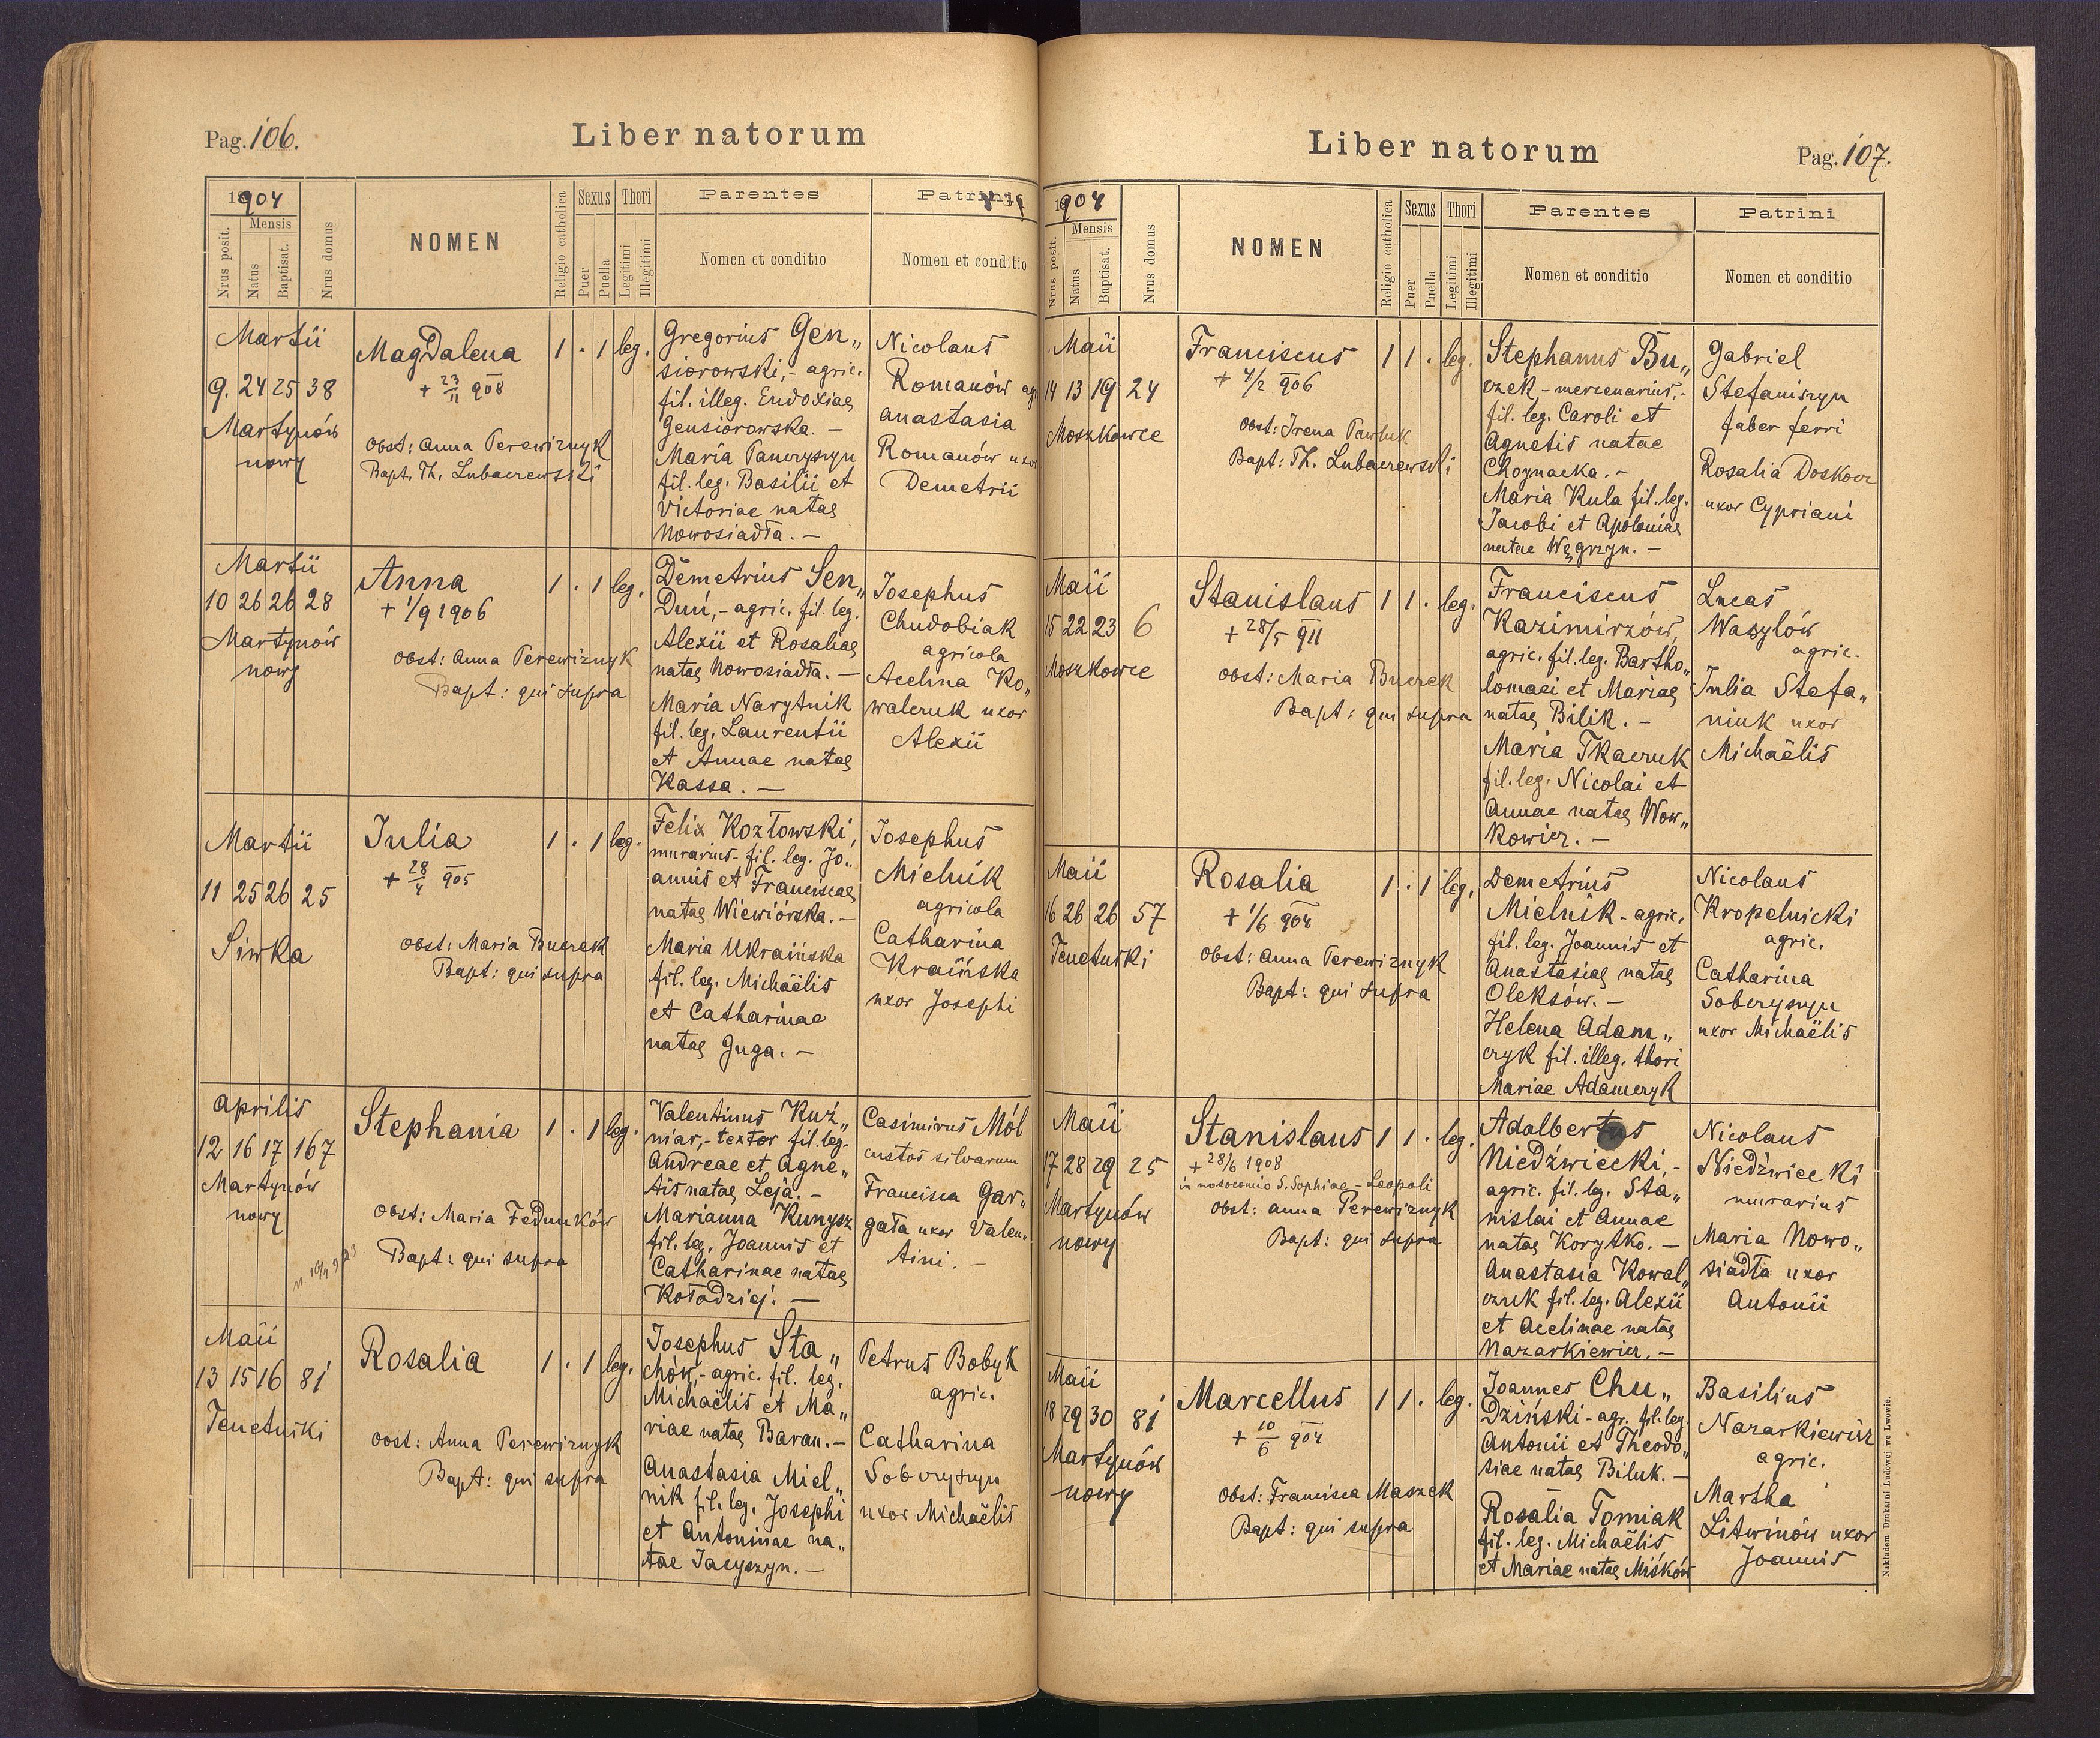 Pag. 106.
Liber natorum
1904
Nrus posit.
Mensis
Natus
Baptisat.
Nrus domus
NOMEN
Religio catholica
Sexus
Puer
Puella
Thori
Legitimi
Illegitimi
Parentes
Nomen et conditio
Patrini
Nomen et conditio
Martii
9. 24 25 38
Martynów
nowy
Magdalena
+ 23/11 908
Obst: Anna Perewiznyk
Bapt. Th. Lubaczewski
1 . 1 leg.
Gregorius Gen„
siorowski,- agric.
fil. illeg. Eudoxiae
Gensiorowska. —
Maria Panczyszyn
fil. leg. Basilii et
Victoriae natae
Nowosiadła. —
Nicolaus
Romanów ag
Anastasia
Romanów uxor
Demetrii
Martii
10 26 26 28
Martynów
nowy
Anna
+ 1/9 1906
Obst: Anna Perewiznyk
Bapt: qui supra
1 . 1 leg.
Demetrius Sen„
Duń,- agric. fil. leg.
Alexii et Rosaliae
natae Nowosiadła. —
Maria Narytnik
fil. leg. Laurentii
et Annae natae
Kassa. —
Josephus
Chudobiak
agricola
Acelina Ko„
walczuk uxor
Alexii
Martii
11 25 26 25
Siwka
Julia
+ 28/4 905
Obst: Maria Buczek
Bapt: qui supra
1 . 1 leg.
Felix Kozłowski,
murarius- fil. leg. Jo„
annis et Franciscae
natae Wiewiórska. —
Maria Ukraińska
fil. leg. Michaëlis
et Catharinae
natae Guga. —
Josephus
Mielnik
agricola
Catharina
Kraińska
uxor Josephi
Aprilis
12 16 17 167
Martynów
nowy
Stephania
Obst: Maria Fedunków
Bapt: qui supra
1 . 1 leg.
Valentinus Kuź„
niar,- textor fil. leg.
Andreae et Agne„
tis natae Leja. —
Marianna Kunysz
fil. leg. Joannis et
Catharinae natae
Kołodziej. —
Casimirus Mól
custos silvarum
Francisca Gar„
gała uxor Valen„
tini. —
Maii
13 15 16 81
Tenetniki
Rosalia
Obst: Anna Perewiznyk
Bapt: qui supra
1 . 1 leg.
Josephus Sta„
chów,- agric. fil. leg.
Michaëlis et Ma„
riae natae Baran. —
Anastasia Miel„
nik fil. leg. Josephi
et Antoninae na„
tae Jacyszyn. —
Petrus Bobyk
agric.
Catharina
Sobczyszyn
uxor Michaëlis
Liber natorum
Pag. 107.
1904
Nrus posit.
Mensis
Natus
Baptisat.
Nrus domus
NOMEN
Religio catholica
Sexus
Puer
Puella
Thori
Legitimi
Illegitimi
Parentes
Nomen et conditio
Patrini
Nomen et conditio
Maii
14 13 19 24
Moszkowce
Franciscus
+ 4/2 906
Obst: Irena Pawluk
Bapt: Th. Lubaczewski
1 1 . leg.
Stephanus Bu„
czek,- mercenarius,-
fil. leg. Caroli et
Agnetis natae
Choynacka. —
Maria Kula fil. leg.
Jacobi et Apoloniae
natae Węgrzyn. —
Gabriel
Stefaniszyn
faber ferri
Rosalia Doskocz
uxor Cypriani
Maii
15 22 23 6
Moszkowce
Stanislaus
+ 28/5 911
Obst: Maria Buczek
Bapt: qui supra
1 1 . leg.
Franciscus
Kazimirzów,
agric. fil. leg. Bartho„
lomaei et Mariae
natae Bilik. —
Maria Tkaczuk
fil. leg. Nicolai et
Annae natae Wow„
kowicz. —
Lucas
Wasylów
agric.
Julia Stefa„
niuk uxor
Michaëlis
Maii
16 26 26 57
Tenetniki
Rosalia
+ 1/6 904
Obst: Anna Perewiznyk
Bapt: qui supra
1 . 1 leg.
Demetrius
Mielnik - agric.
fil. leg. Joannis et
Anastasiae natae
Oleksów. —
Helena Adam„
czyk fil. illeg. thori
Mariae Adamczyk
Nicolaus
Kropelnicki
agric.
Catharina
Soberysyn
uxor Michaëlis
Maii
17 28 29 25
Martynów
nowy
Stanislaus
+ 28/6 1908
in nosocomio S. Sophiae - Leopoli
Obst: Anna Perewiznyk
Bapt: qui supra
1 1 . leg.
Adalbertus
Niedźwiecki,-
agric. fil. leg. Sta„
nislai et Annae
natae Korytko. —
Anastasia Kowal„
czuk fil. leg. Alexii
et Acelinae natae
Nazarkiewicz. —
Nicolaus
Niedźwiecki
murarius
Maria Nowo„
siadła uxor
Antonii
Maii
18 29 30 81
Martynów
nowy
Marcellus
+ 10/6 904
Obst: Francisca Maszek
Bapt: qui supra
1 1 . leg.
Joannes Chu„
Dziński - agr. fil. leg.
Antonii et Theodo„
siae natae Biluk. —
Rosalia Tomiak
fil. leg. Michaëlis
et Mariae natae Miśków
Basilius
Nazarkiewicz
agric.
Martha
Litwinów uxor
Joannis
Nakładem Drukarni Ludowej we Lwowie.